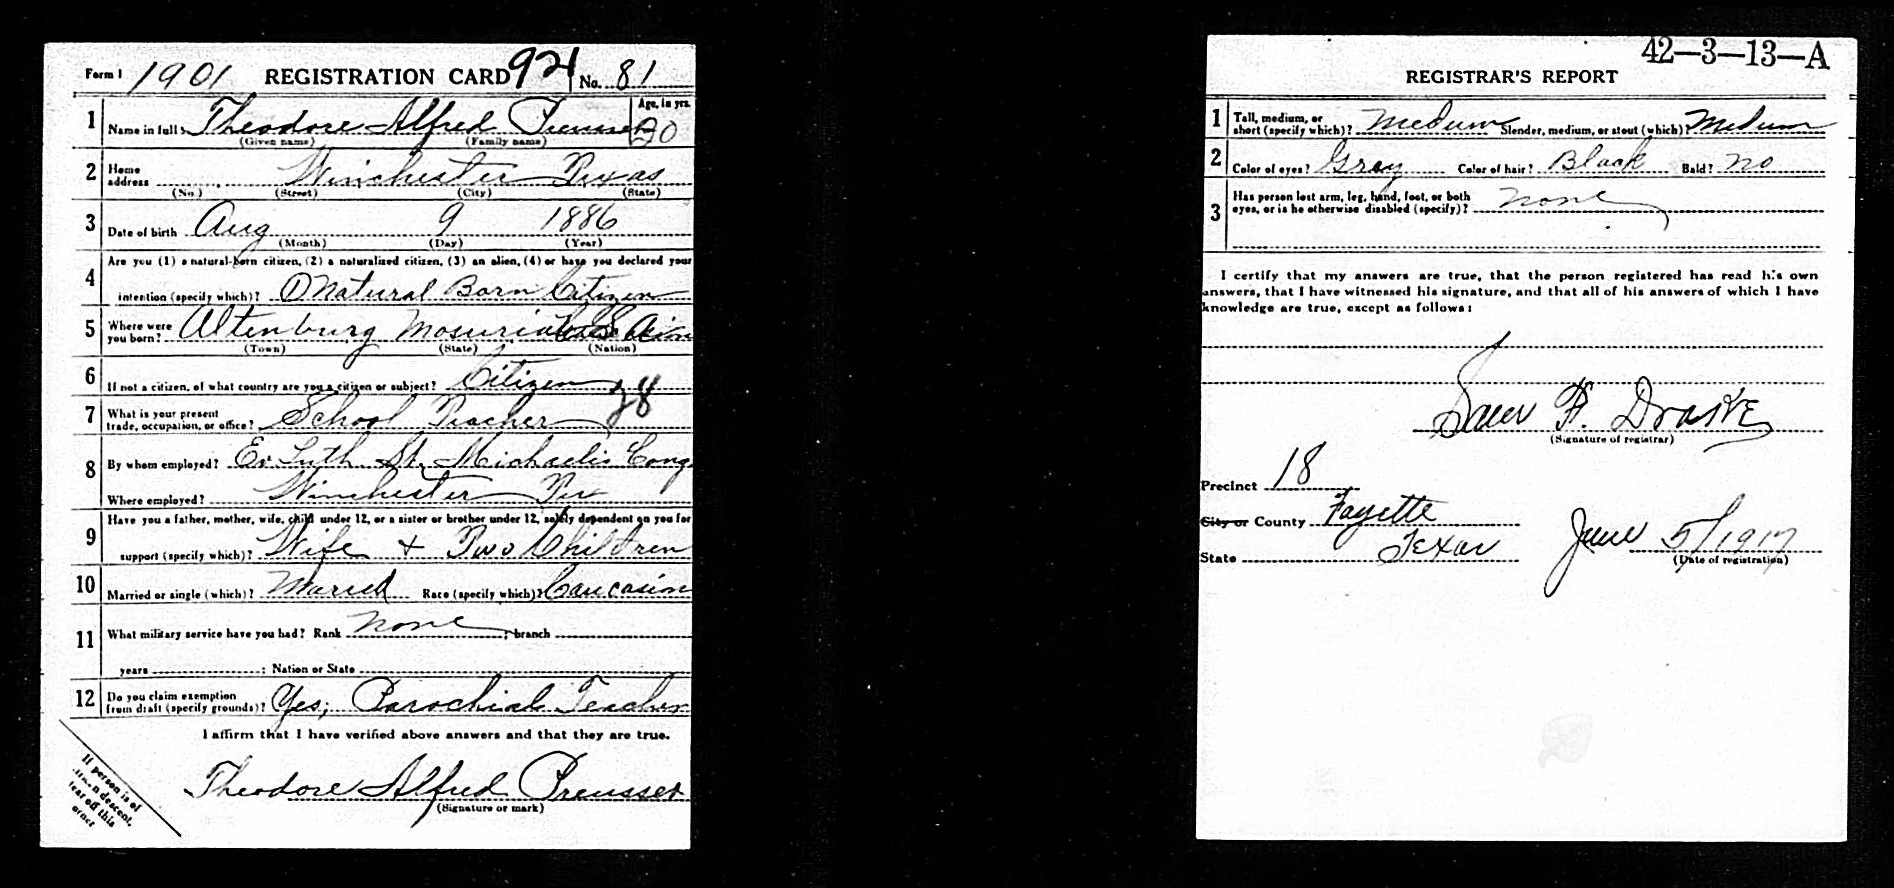 Form 1 1901 REGISTRATION CARD 921 No. 81
1 Name in full Theodore Alfred Preusser Age, in yrs. 30
(Given name) (Family name)
2 Home address Winchester Texas
(No.) (Street) (City) (State)
3 Date of birth Aug 9 1886
(Month) (Day) (Year)
4 Are you (1) a natural-born citizen, (2) a naturalized citizen, (3) an alien, (4) or have you declared your
intention (specify which)? (1) Natural Born Citizen
5 Where were you born? Altenburg Mosuria
(Town) (State) (Nation)
6 If not a citizen, of what country are you a citizen or subject? Citizen
7 What is your present trade, occupation, or office? School Teacher 28
8 By whom employed? Ev Luth St. Michaelis Cong
Where employed? Winchester Tex
9 Have you a father, mother, wife, child under 12, or a sister or brother under 12, solely dependent on you for
support (specify which)? Wife + Two Children
10 Married or single (which)? Maried Race (specify which)? Caucasin
11 What military service have you had? Rank None ; branch
years ; Nation or State
12 Do you claim exemption from draft (specify grounds)? Yes, Parochial Teacher
I affirm that I have verified above answers and that they are true.
Theodore Alfred Preusser
(Signature or mark)
If person is of
descent,
tear off this
corner
42-3-13-A
REGISTRAR'S REPORT
1 Tall, medium, or short (specify which)? Medium Slender, medium, or stout (which)? Medium
2 Color of eyes? Gray Color of hair? Black Bald? No
3 Has person lost arm, leg, hand, foot, or both eyes, or is he otherwise disabled (specify)? None
I certify that my answers are true, that the person registered has read his own
answers, that I have witnessed his signature, and that all of his answers of which I have
knowledge are true, except as follows:
F. Drake
(Signature of registrar)
Precinct 18
City or County Fayette
State Texas June 5/1917
(Date of registration)